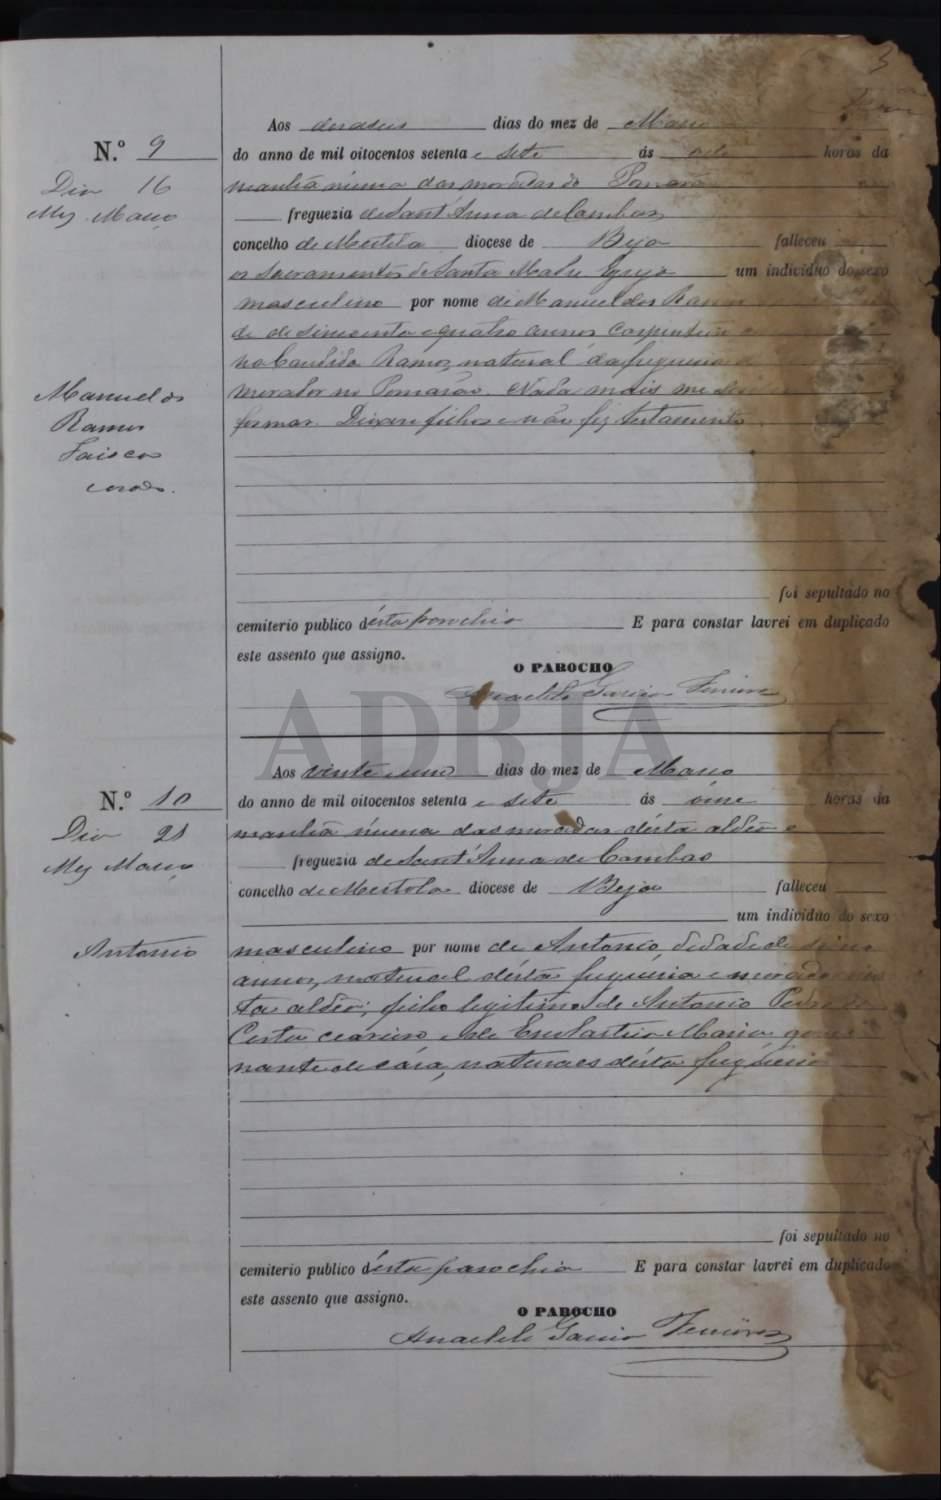 3
Aos dezaseis dias do mez de Março
N.º 9
do anno de mil oitocentos setenta e sete ás oito horas da
Dia 16
manhã n'uma das moradas do Pomarão
Mez Março
freguezia de Sant'Anna de Cambas
concelho de Mertola diocese de Beja falleceu
os Sacramentos de Santa Madre Egreja um individuo do sexo
masculino por nome de Manuel dos Ramos
de sincoenta e quatro annos Carpinteiro
Candida Ramos, natural da freguezia
Manuel dos
morador no Pomarão. Nada mais me
Ramos
formar. Deixou filhos e não fez testamento.
Faisco
foi sepultado no
cemiterio publico d'ésta parochia E para constar lavrei em duplicado
este assento que assigno.
O PAROCHO
Anacleto Garcia
ADBJA
Aos vinte e um dias do mez de Março
N.º 10
do anno de mil oitocentos setenta e sete ás onze horas da
Dia 21
manhã n'uma das moradas d'ésta aldêa e
Mez Março
freguezia de Sant'Anna de Cambas
concelho de Mertola diocese de Beja falleceu
um individuo do sexo
Antonio
masculino por nome de Antonio, d'edade de
annos, natural d'ésta freguezia e morador
ta aldêa; filho legitimo de Antonio
Costa ceareiro e de Maria gover
nante de cása, naturaes d'ésta freguezia
foi sepultado no
cemiterio publico d'ésta parochia E para constar lavrei em duplicado
este assento que assigno.
O PAROCHO
Anacleto Garcia